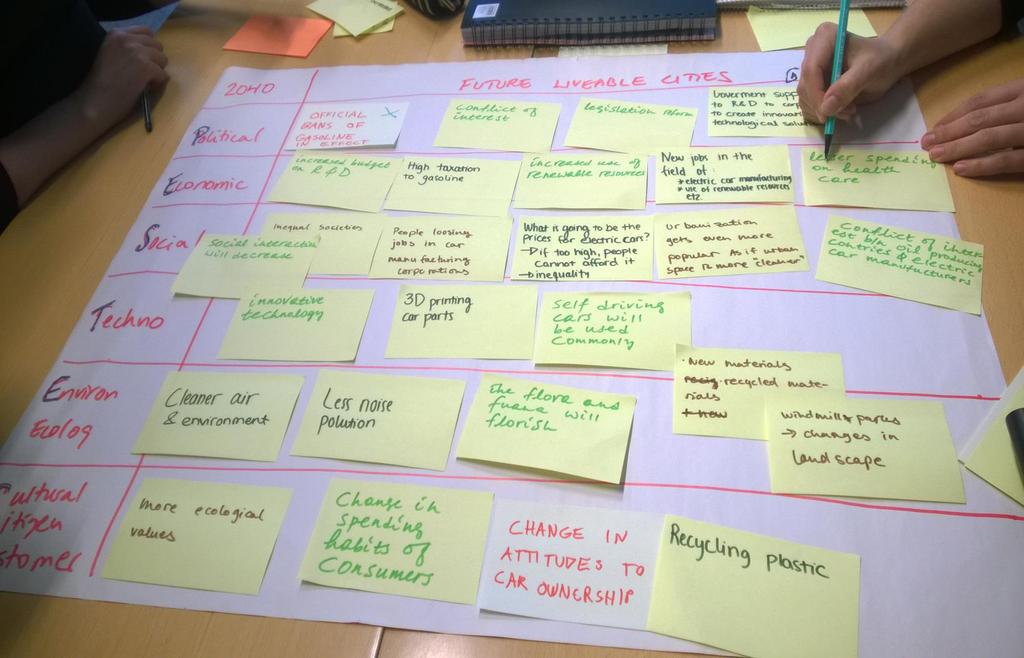 2040
FUTURE LIVEABLE CITIES
Political
OFFICIAL
BANS OF
GASOLINE
IN EFFECT
X
Conflict of
interest
legislation reform
Government supp
to R&D to
to create innova
technological
Economic
increased budget
on R&D
High taxation
to gasoline
increased use of
renewable resources
New jobs in the
field of
* electric car manufacturing
* use of renewable resources
etc.
spending
on health
care
Social
social interactio
will decrease
inequal societies
People loosing
jobs in car
manufacturing
corporations
What is going to be the
prices for electric cars?
→ if too high, people
cannot afford it
→ inequality
Urbanization
gets even more
popular. As if urban
space is more "cleaner"
Conflict of inter
est b/n oil producing
contries & electric
car manufacturers
Techno
innovative
technology
3D printing
car parts
Self driving
cars will
be used
commonly
Environ
Ecolog
Cleaner air
& environment
Less noise
polution
The flora and
fuana will
florish
· New materials
recycled mate-
rials
+ new
windmill parks
→ changes in
landscape
ultural
itizen
stomer
more ecological
values
Change in
spending
habits of
consumers
CHANGE IN
ATTITUDES TO
CAR OWNERSHIP
Recycling plastic